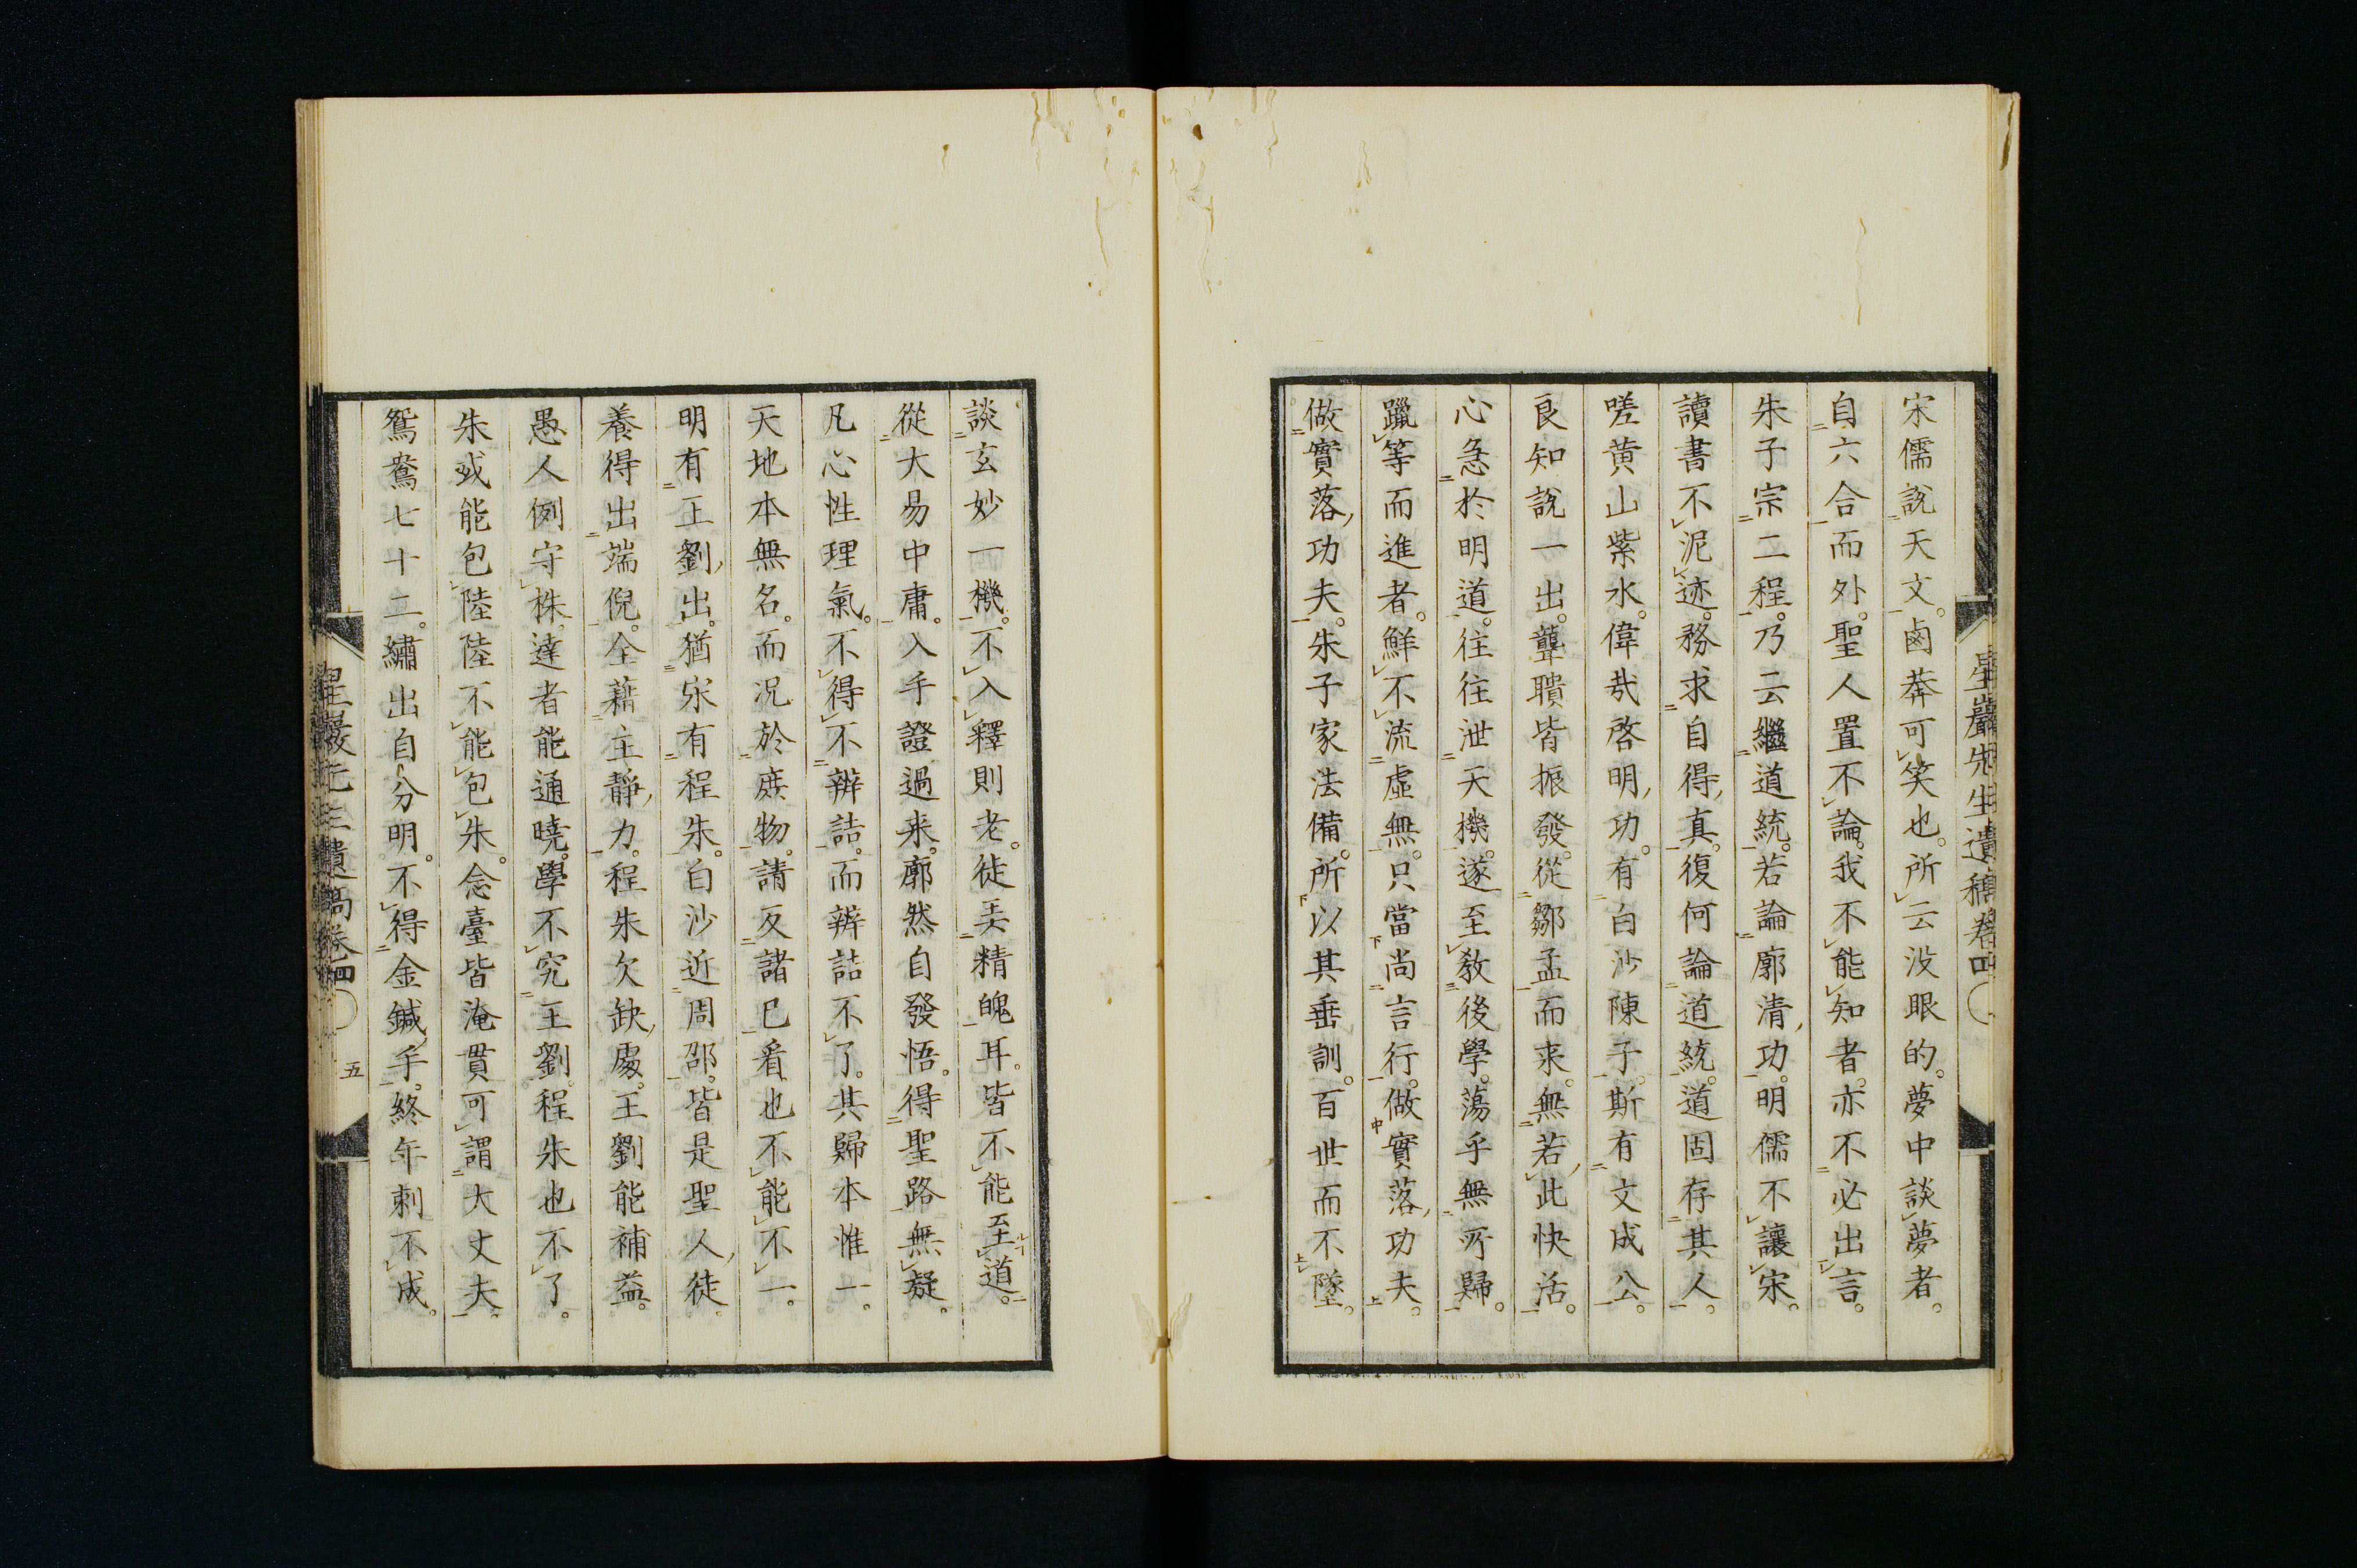 星巖先生遺稿卷四
宋儒說天文。鹵莽可笑也。所云没眼的。夢中談夢者。
自六合而外。聖人置不論。我不能知者。亦不必出言。
朱子宗二程。乃云繼道統。若論廓清功。明儒不讓宋。
讀書不泥迹。務求自得真。復何論道統。道固存其人。
嗟黄山紫水。偉哉啓明功。有白沙陳子。斯有文成公。
良知說一出。聾聵皆振發。從鄒孟而来。無若此快活。
心急於明道。往往泄天機。遂至教後學。蕩乎無所歸。
躐等而進者。鮮不流虛無。只當尚言行。做實落功夫。
做實落功夫。朱子家法備。所以其垂訓。百世而不墜。
談玄妙一機。不入釋則老。徒弄精魄耳。皆不能至道。
從大易中庸。入手證過来。廓然自發悟。得聖路無礙。
凡心性理氣。不得不辨詰。而辨詰不了。其歸本惟一。
天地本無名。而况於庶物。請反諸已看。也不能不一。
明有王劉出。猶宋有程朱。白沙近周邵。皆是聖人徒。
養得出端倪。全藉主靜力。程朱欠缺處。王劉能補益。
愚人例守株。達者能通曉。學不究王劉。程朱也不了。
朱或能包陸。陸不能包朱。念臺皆淹貫。可謂大丈夫。
鴛鴦七十二。繡出自分明。不得金鍼手。終年刺不成。
星巖先生遺稿卷四
五